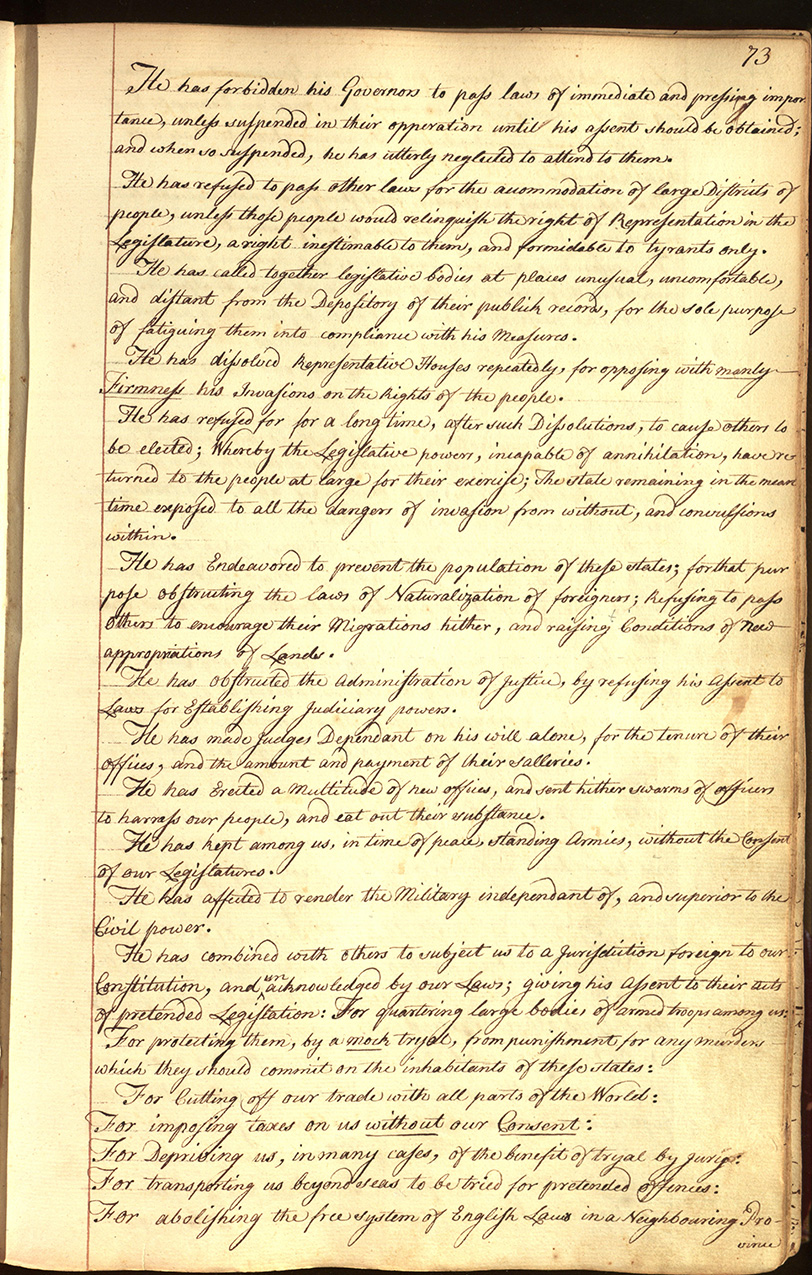 73
He has forbidden his Governors to pass laws of immediate and pressing impor
tance, unless suspended in their opperation until his assent should be obtained;
and when so suspended, he has utterly neglected to attend to them.
He has refused to pass other laws for the accommodation of large Districts of
people, unless those people would relinquish the right of Representation in the
Legislature, a right inestimable to them, and formidable to tyrants only.
He has called together legislative bodies at places unusual, uncomfortable,
and distant from the Depository of their publick records, for the sole purpose
of fatiguing them into compliance with his Measures.
He has dissolved Representative Houses repeatedly, for opposing with manly
Firmness his Invasions on the Rights of the people.
He has refused for for a long time, after such Dissolutions, to cause others to
be elected; Whereby the Legislative powers, incapable of annihilation, have re
turned to the people at large for their exercise; The state remaining in the mean
time exposed to all the dangers of invasion from without, and concussions
within.
He has Endeavored to prevent the population of these states; for that pur
pose obstructing the laws of Naturalization of foreigners; Refusing to pass
others to encourage their Migrations hither, and raising Conditions of new
appropriations of Lands.
He has obstructed the Administration of Justice, by refusing his Assent to
Laws for Establishing Judiciary powers.
He has made Judges Dependant on his will alone, for the tenure of their
offices, and the amount and payment of their salleries.
He has Erected a Multitude of new offices, and sent hither swarms of officers
to harrass our people, and eat out their substance.
He has kept among us, in time of peace, standing Armies, without the Consent
of our Legislatures.
He has affected to render the Military independant of, and superior to the
Civil power.
He has combined with others to subject us to a Jurisdiction foreign to our
Constitution, and unacknowledged by our Laws; giving his Assent to their acts
of pretended Legislation: For quartering large bodies of armed troops among us:
For protecting them, by a mock tryal, from punishment for any murders
which they should commit on the inhabitants of these states:
For Cutting off our trade with all parts of the World:
For imposing taxes on us without our Consent:
For Depriving us, in many cases, of the benefit of tryal by jury:
For transporting us beyond seas to be tried for pretended offences:
For abolishing the free system of English Laws in a Neighbouring Pro-
vince